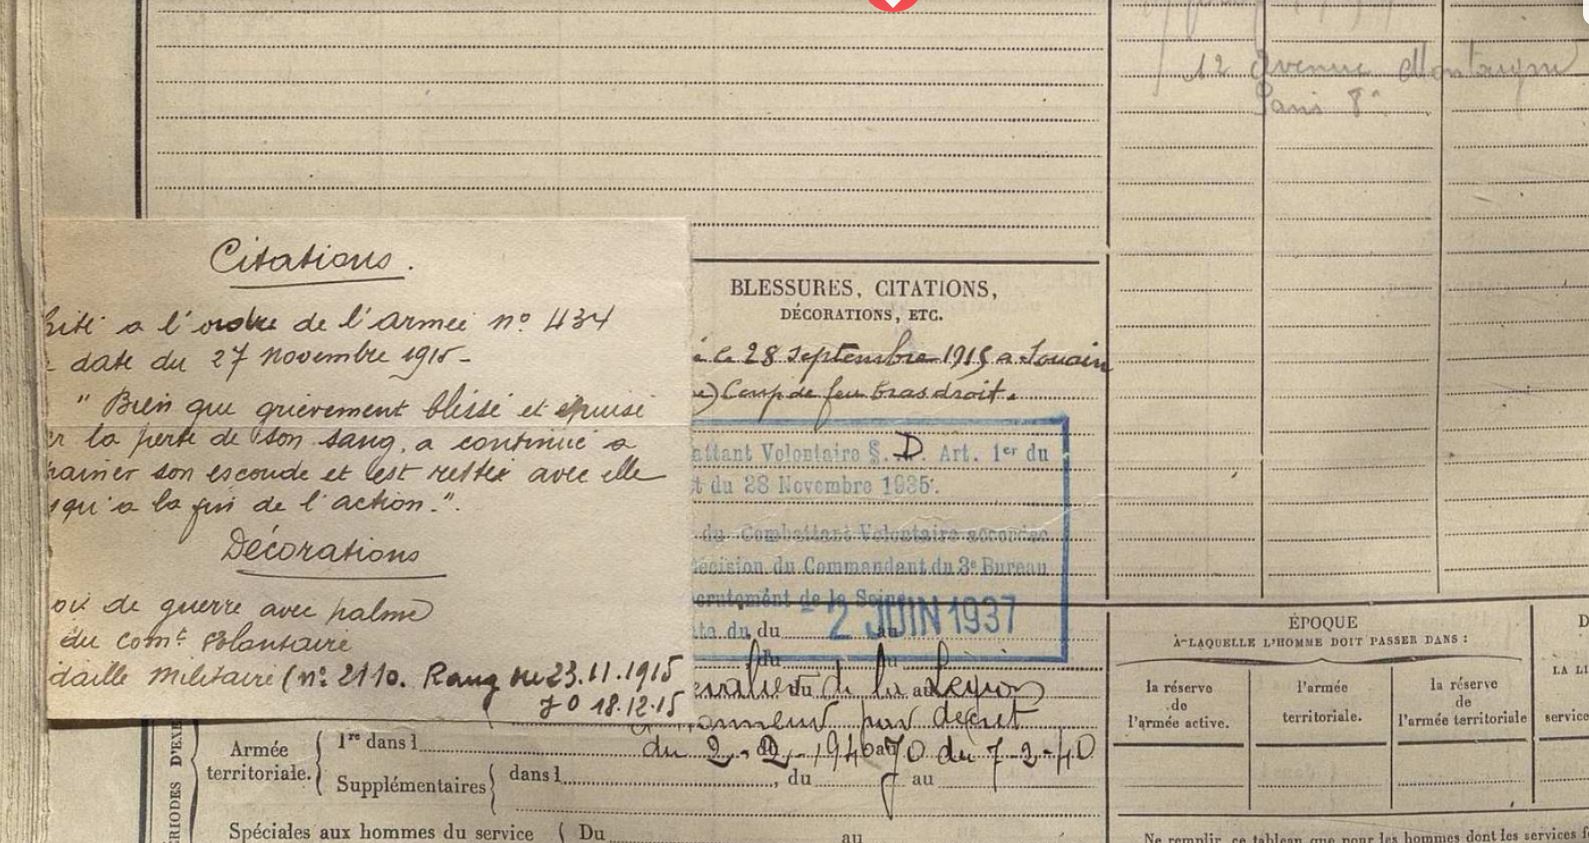 12 Avenue Montaigne
Paris 8e
Citations.
cité a l'ordre de l'armée n° 434
date du 27 novembre 1915-
" Bien que grièvement blessé et épuisé
la perte de son sang, a continué a
rainer son escoude et est rester avec elle
squ'a la fin de l'action.".
Décorations
oix de guerre avec palme
du comt volontaire
daille militaire (n° 2110. Rang du 23.11.1915
JO 18.12.15
BLESSURES, CITATIONS,
DÉCORATIONS, ETC.
é le 28 septembre 1915 a Souain
) Coup de feu bras droit.
attant Volontaire §. D. Art. 1er du
t du 28 Novembre 1935.
du Combattant Volontaire accordée
écision du Commandant du 3e Bureau
crutement de la Seine
ate du du 2 JUIN 1937 au
du au
evalier du de la au Légion
onneur par décret
du 2-2-1940 JO du 7-2-40
RIODES D'EXE
Armée
territoriale.
1re dans l
Supplémentaires
dans l , du au
Spéciales aux hommes du service
Du au
ÉPOQUE
À LAQUELLE L'HOMME DOIT PASSER DANS :
la réserve
de
l'armée active.
l'armée
territoriale.
la réserve
de
l'armée territoriale
D
LA LI
service
Ne remplir ce tableau que pour les hommes dont les services